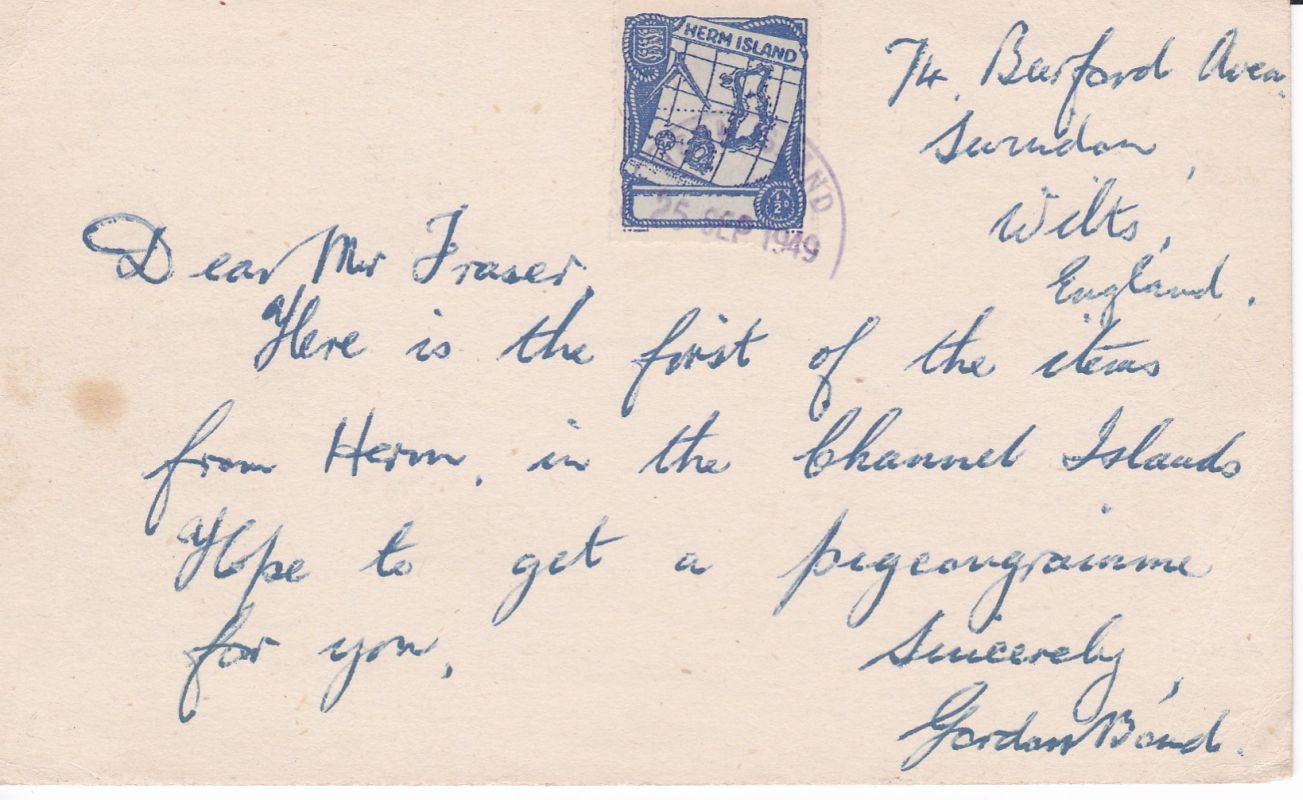 HERM ISLAND
½D
25 SEP 1949
74, Burford Aven.
Swindon,
Wilts,
England.
Dear Mr Fraser,
Here is the first of the items
from Herm, in the Channel Islands
Hope to get a pigeongramme
for you,
Sincerely,
Gordon Bond.